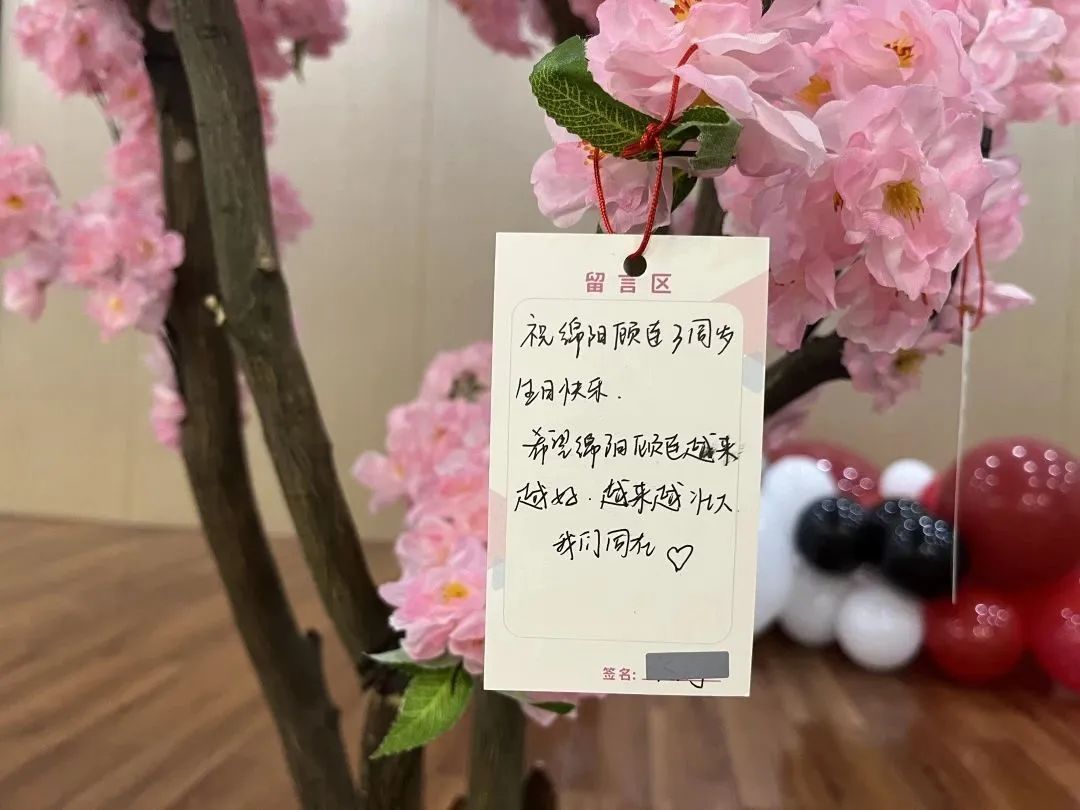 留言区
祝绵阳顾连3周岁
生日快乐.
希望绵阳顾连越来
越好.越来越壮大.
我们同在♡
签名: